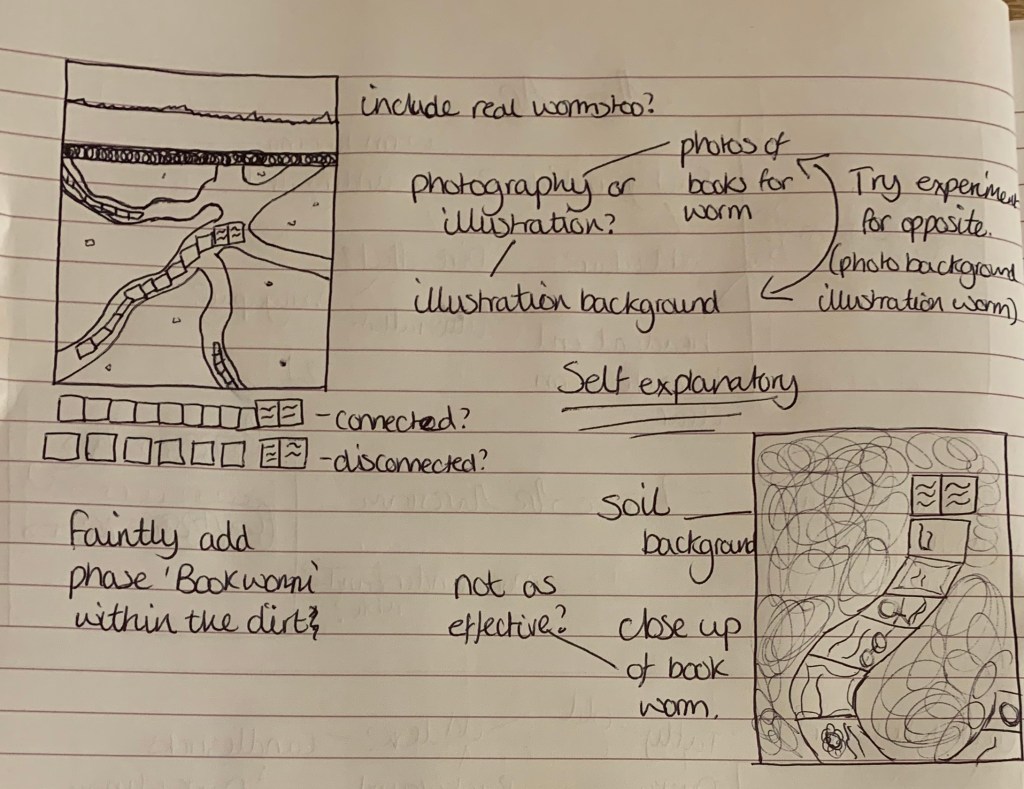 include real worms too?
photography or
illustration?
photos of
books for
worm
illustration background
Try experiment
for opposite.
(photo background
illustration worm)
Self explanatory
-connected?
-disconnected?
Faintly add
phase 'Bookworm'
within the dirt?
not as
effective?
soil
background
close up
of book
worm.